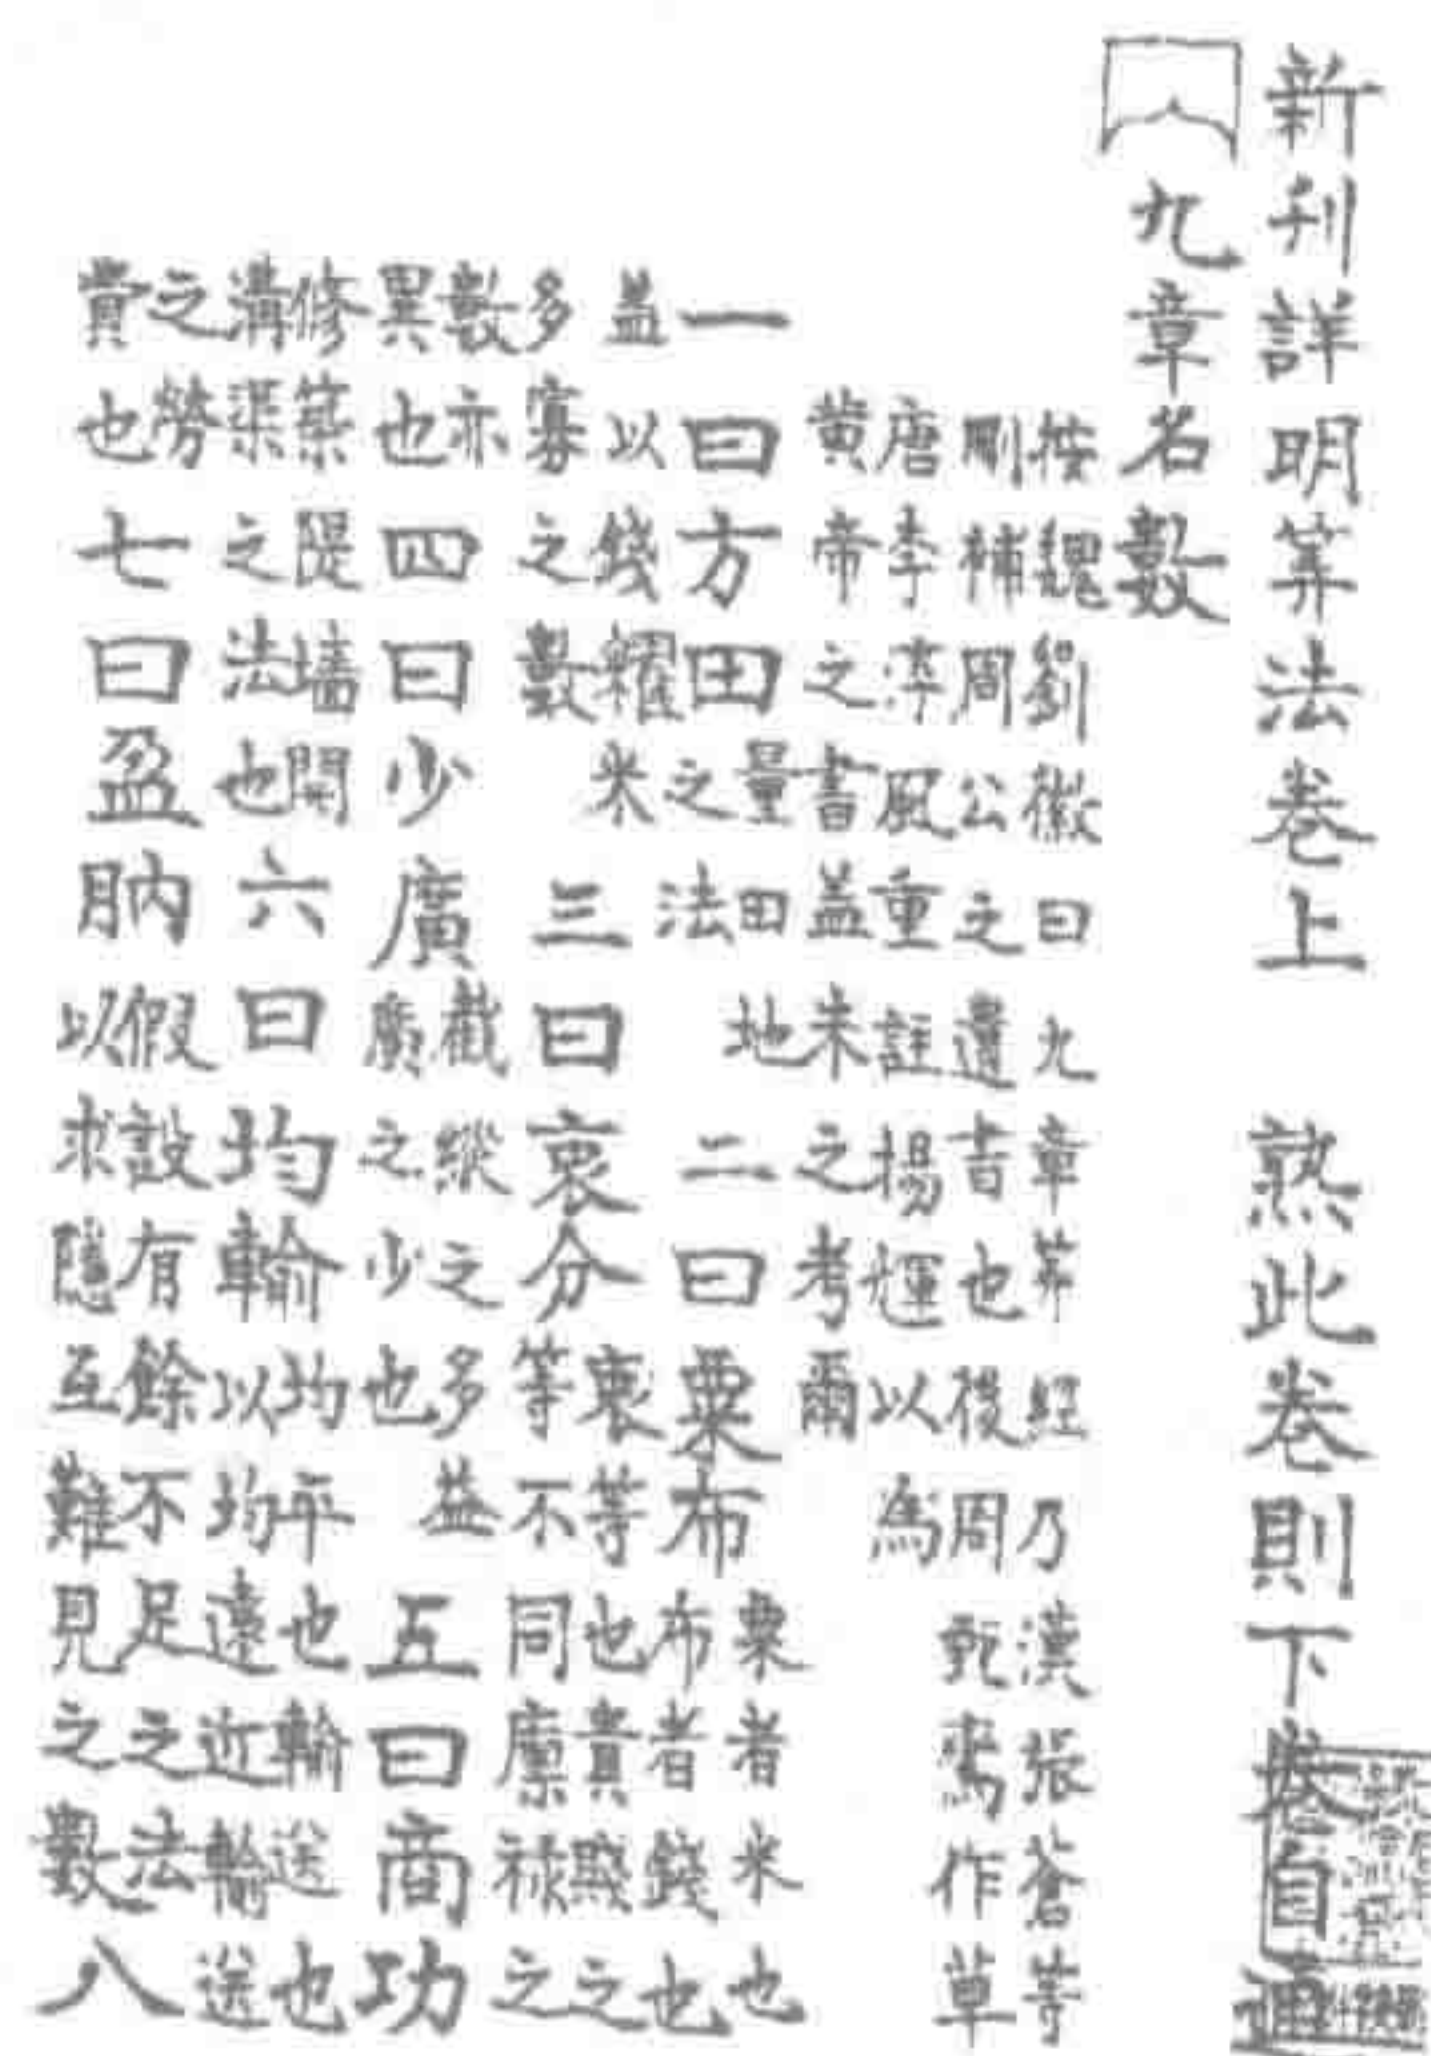 新刊詳明筭法卷上　熟此卷則下卷自通
九章名數
按魏劉徽曰九章筭經乃漢張蒼等
刪補周公之遺書也後周甄鸞作草
唐李淳風重註揚煇以為
黃帝之書盖未之考爾
一曰方田量田地之法二曰粟布粟者米也布者錢也
盖以錢糴米多寡之數三曰衰分衰等也貴賤之等不同廩祿之
數亦異也四曰少廣截縱之多益廣之少也五曰商功
修築隄墻開溝渠之法也六曰均輸均平也輸送也以均遠近輸送
之勞費也七曰盈朒假設有餘不足之法以求隱互難見之數八